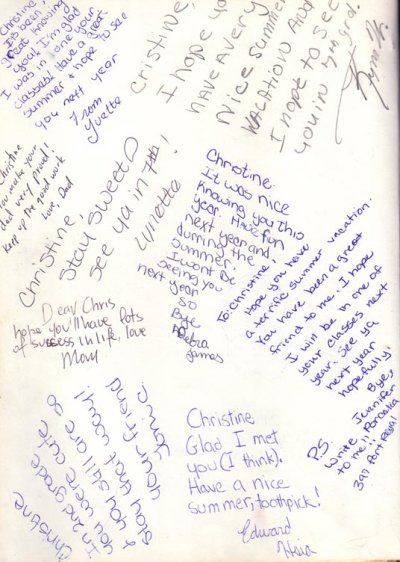 Christine,
It's been
great knowing
you. I'm glad
I was in one your
classes. Have a great
summer & hope to see
you next year
From
Yvette
Christine,
I hope you
have a very
Nice summer
Vacation and
I hope to see
you in 7th grd.
Christine
you make your
dad very proud!
keep up the good work
love, Dad
Christine,
Stay sweet
See ya in 7th!
Christine:
It was nice
Knowing you this
year. Have fun
next year and
during the
summer.
I wont be
seeing you
next year
so
Bye
Debra
James
To: Christine
Hope you have
a terrific summer vacation.
You have been a great
friend to me. I hope
I will be in one of
your classes next
year. See ya
next year
hopefully.
Bye,
Juenifer
P.S.
Write
to me!!
397 Port Royal
Dear Chris
hope you'll have lots
of success in life, love
Mom
Christine
In 2nd grade
you were cute
& you still are so
stay that way!
your friend
Christine
Glad I met
you (I think).
Have a nice
summer, toothpick!
Edward